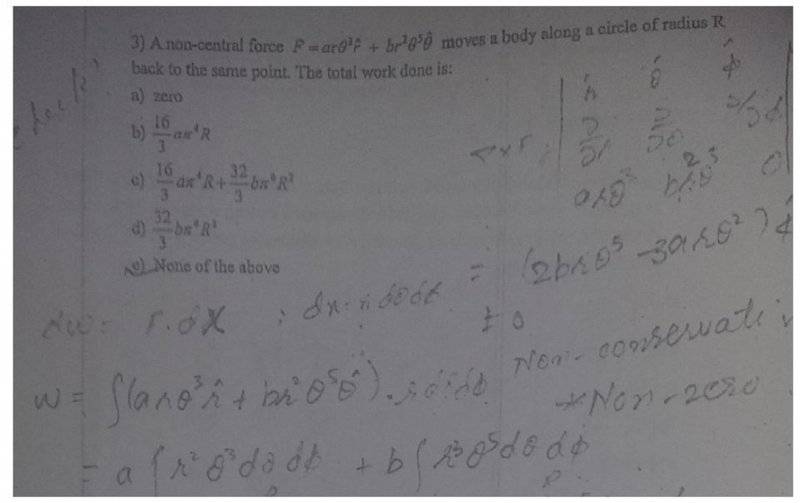 3) A non-central force F = arθ³r̂ + br²θ⁵θ̂ moves a body along a circle of radius R
back to the same point. The total work done is:
a) zero
b) 16/3 aπ⁴R
c) 16/3 aπ⁴R + 32/3 bπ⁶R³
d) 32/3 bπ⁶R³
e) None of the above
r̂ θ̂ φ̂
∂/∂r ∂/∂θ ∂/∂φ
arθ³ br²θ⁵ 0
= (2brθ⁵ - 3arθ²) φ̂
≠ 0
Non-conservati
Non-zero
dw = F.dX ; dx = r dθ dφ
W = ∫(arθ³r̂ + br²θ⁵θ̂). r dθ dφ
= a ∫ r² θ³ dθ dφ + b ∫ r³ θ⁵ dθ dφ